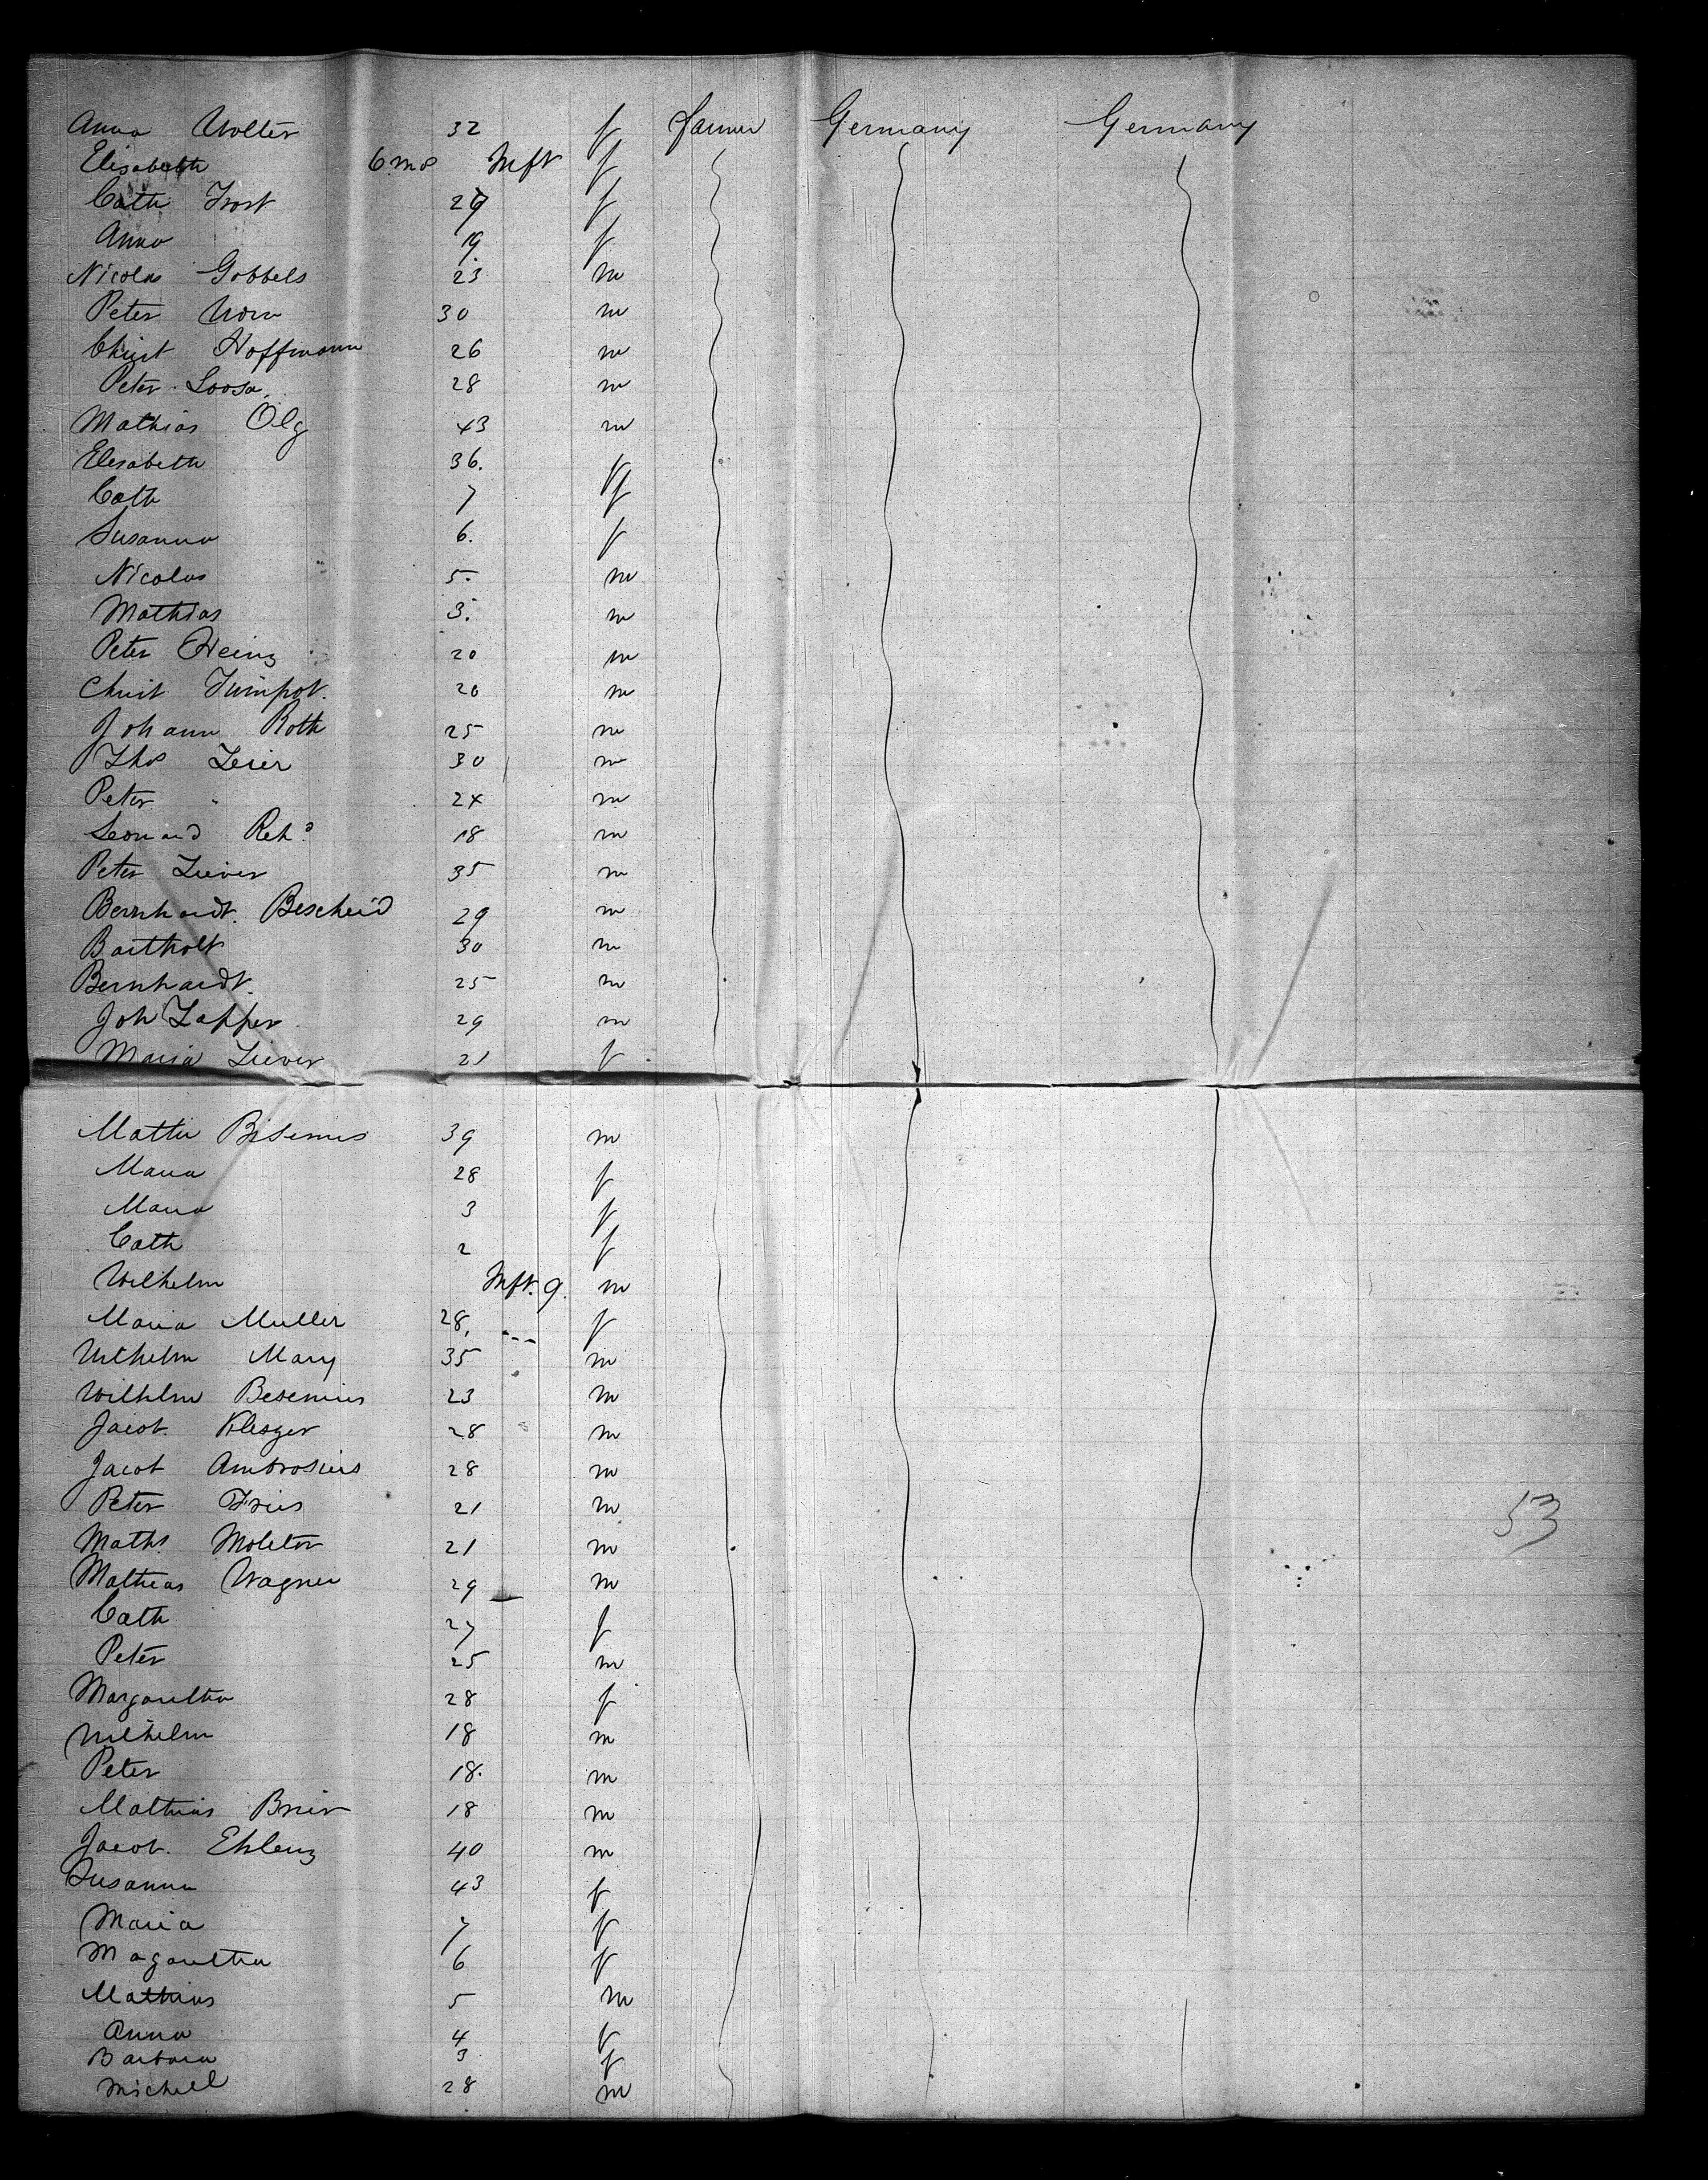 Anna Wolter 32 f farmer Germany Germany
Elisabeth 6 mos Inft f
Cath Trost 29 f
Anna 19 f
Nicolas Gobbels 23 m
Peter 30 m
Christ Hoffmann 26 m
Peter Loosa 28 m
Mathias Olg 43 m
Elisabeth 36. f
Cath 7 f
Susanna 6. f
Nicolas 5. m
Mathias 3. m
Peter Heinz 20 m
Christ 20 m
Johann Roth 25 m
Thos Zeier 30 m
Peter " 24 m
Leonard 18 m
Peter Ziever 35 m
Bernhardt. Bescheid 29 m
Bartholt 30 m
Bernhardt. 25 m
Joh Zapper 29 m
Maria Ziever 21 f
Matth Bisenius 39 m
Maria 28 f
Maria 3 f
Cath 2 f
Wilhelm Inft. 9. m
Maria Muller 28, f
Wilhelm Mary 35 m
Wilhelm Besenius 23 m
Jacob 28 m
Jacob Ambrosius 28 m
Peter Fries 21 m
Maths Molitor 21 m
Mathias Wagner 29 m
Cath 27 f
Peter 25 m
Margaretha 28 f
Wilhelm 18 m
Peter 18. m
Mathias 18 m
Jacob. Ehlenz 40 m
Susanna 43 f
Maria 7 f
Magaretha 6 f
Mathias 5 m
Anna 4 f
Barbara 3 f
Michell 28 m
53